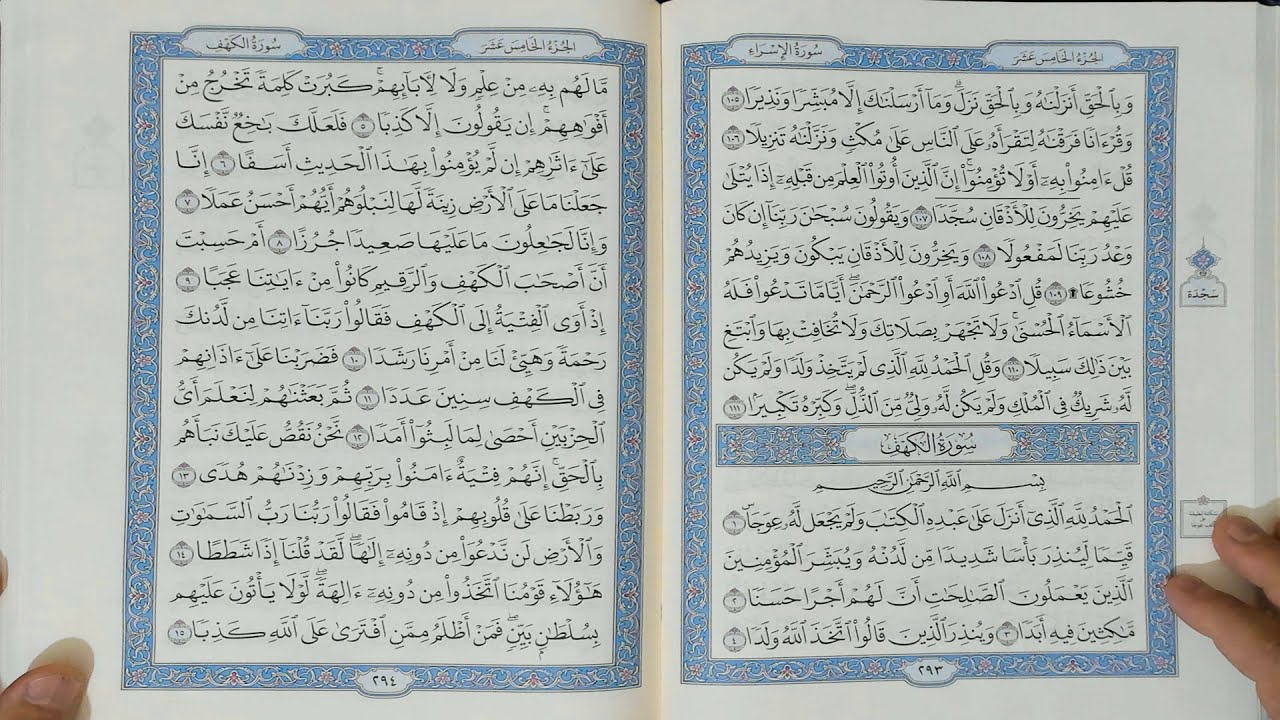 الجزء الخامس عشر
سورة الإسراء
وَبِٱلْحَقِّ أَنزَلْنَٰهُ وَبِٱلْحَقِّ نَزَلَ ۗ وَمَآ أَرْسَلْنَٰكَ إِلَّا مُبَشِّرًا وَنَذِيرًا ١٠٥
وَقُرْءَانًا فَرَقْنَٰهُ لِتَقْرَأَهُۥ عَلَى ٱلنَّاسِ عَلَىٰ مُكْثٍ وَنَزَّلْنَٰهُ تَنزِيلًا ١٠٦
قُلْ ءَامِنُوا۟ بِهِۦٓ أَوْ لَا تُؤْمِنُوٓا۟ ۚ إِنَّ ٱلَّذِينَ أُوتُوا۟ ٱلْعِلْمَ مِن قَبْلِهِۦٓ إِذَا يُتْلَىٰ
عَلَيْهِمْ يَخِرُّونَ لِلْأَذْقَانِ سُجَّدًا ١٠٧ وَيَقُولُونَ سُبْحَٰنَ رَبِّنَآ إِن كَانَ
وَعْدُ رَبِّنَا لَمَفْعُولًا ١٠٨ وَيَخِرُّونَ لِلْأَذْقَانِ يَبْكُونَ وَيَزِيدُهُمْ
خُشُوعًا ۩ ١٠٩ قُلِ ٱدْعُوا۟ ٱللَّهَ أَوِ ٱدْعُوا۟ ٱلرَّحْمَٰنَ ۖ أَيًّا مَّا تَدْعُوا۟ فَلَهُ
ٱلْأَسْمَآءُ ٱلْحُسْنَىٰ ۚ وَلَا تَجْهَرْ بِصَلَاتِكَ وَلَا تُخَافِتْ بِهَا وَٱبْتَغِ
بَيْنَ ذَٰلِكَ سَبِيلًا ١١٠ وَقُلِ ٱلْحَمْدُ لِلَّهِ ٱلَّذِى لَمْ يَتَّخِذْ وَلَدًا وَلَمْ يَكُن
لَّهُۥ شَرِيكٌ فِى ٱلْمُلْكِ وَلَمْ يَكُن لَّهُۥ وَلِىٌّ مِّنَ ٱلذُّلِّ ۖ وَكَبِّرْهُ تَكْبِيرًۢا ١١١
سُورَةُ الكَهْفِ
بِسْمِ ٱللَّهِ ٱلرَّحْمَٰنِ ٱلرَّحِيمِ
ٱلْحَمْدُ لِلَّهِ ٱلَّذِىٓ أَنزَلَ عَلَىٰ عَبْدِهِ ٱلْكِتَٰبَ وَلَمْ يَجْعَل لَّهُۥ عِوَجَاۜ ١
قَيِّمًا لِّيُنذِرَ بَأْسًا شَدِيدًا مِّن لَّدُنْهُ وَيُبَشِّرَ ٱلْمُؤْمِنِينَ
ٱلَّذِينَ يَعْمَلُونَ ٱلصَّٰلِحَٰتِ أَنَّ لَهُمْ أَجْرًا حَسَنًا ٢
مَّٰكِثِينَ فِيهِ أَبَدًا ٣ وَيُنذِرَ ٱلَّذِينَ قَالُوا۟ ٱتَّخَذَ ٱللَّهُ وَلَدًا ٤
٢٩٣
سجدة
الجزء الخامس عشر
سورة الكهف
مَّا لَهُم بِهِۦ مِنْ عِلْمٍ وَلَا لِءَابَآئِهِمْ ۚ كَبُرَتْ كَلِمَةً تَخْرُجُ مِنْ
أَفْوَٰهِهِمْ ۚ إِن يَقُولُونَ إِلَّا كَذِبًا ٥ فَلَعَلَّكَ بَٰخِعٌ نَّفْسَكَ
عَلَىٰٓ ءَاثَٰرِهِمْ إِن لَّمْ يُؤْمِنُوا۟ بِهَٰذَا ٱلْحَدِيثِ أَسَفًا ٦ إِنَّا
جَعَلْنَا مَا عَلَى ٱلْأَرْضِ زِينَةً لَّهَا لِنَبْلُوَهُمْ أَيُّهُمْ أَحْسَنُ عَمَلًا ٧
وَإِنَّا لَجَٰعِلُونَ مَا عَلَيْهَا صَعِيدًا جُرُزًا ٨ أَمْ حَسِبْتَ
أَنَّ أَصْحَٰبَ ٱلْكَهْفِ وَٱلرَّقِيمِ كَانُوا۟ مِنْ ءَايَٰتِنَا عَجَبًا ٩
إِذْ أَوَى ٱلْفِتْيَةُ إِلَى ٱلْكَهْفِ فَقَالُوا۟ رَبَّنَآ ءَاتِنَا مِن لَّدُنكَ
رَحْمَةً وَهَيِّئْ لَنَا مِنْ أَمْرِنَا رَشَدًا ١٠ فَضَرَبْنَا عَلَىٰٓ ءَاذَانِهِمْ
فِى ٱلْكَهْفِ سِنِينَ عَدَدًا ١١ ثُمَّ بَعَثْنَٰهُمْ لِنَعْلَمَ أَىُّ
ٱلْحِزْبَيْنِ أَحْصَىٰ لِمَا لَبِثُوٓا۟ أَمَدًا ١٢ نَّحْنُ نَقُصُّ عَلَيْكَ نَبَأَهُم
بِٱلْحَقِّ ۚ إِنَّهُمْ فِتْيَةٌ ءَامَنُوا۟ بِرَبِّهِمْ وَزِدْنَٰهُمْ هُدًى ١٣
وَرَبَطْنَا عَلَىٰ قُلُوبِهِمْ إِذْ قَامُوا۟ فَقَالُوا۟ رَبُّنَا رَبُّ ٱلسَّمَٰوَٰتِ
وَٱلْأَرْضِ لَن نَّدْعُوَا۟ مِن دُونِهِۦٓ إِلَٰهًا ۖ لَّقَدْ قُلْنَآ إِذًا شَطَطًا ١٤
هَٰٓؤُلَآءِ قَوْمُنَا ٱتَّخَذُوا۟ مِن دُونِهِۦٓ ءَالِهَةً ۖ لَّوْلَا يَأْتُونَ عَلَيْهِم
بِسُلْطَٰنٍۭ بَيِّنٍ ۖ فَمَنْ أَظْلَمُ مِمَّنِ ٱفْتَرَىٰ عَلَى ٱللَّهِ كَذِبًا ١٥
٢٩٤